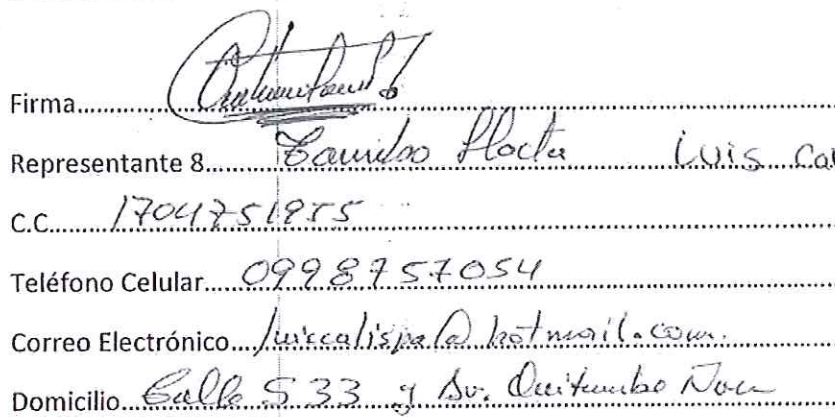 Firma
Representante 8 Llacta Luis Cal
C.C. 1704751955
Teléfono Celular 0998757054
Correo Electrónico luiscalispa@hotmail.com.
Domicilio Calle S 33 y Av. Quitumbe Ñan